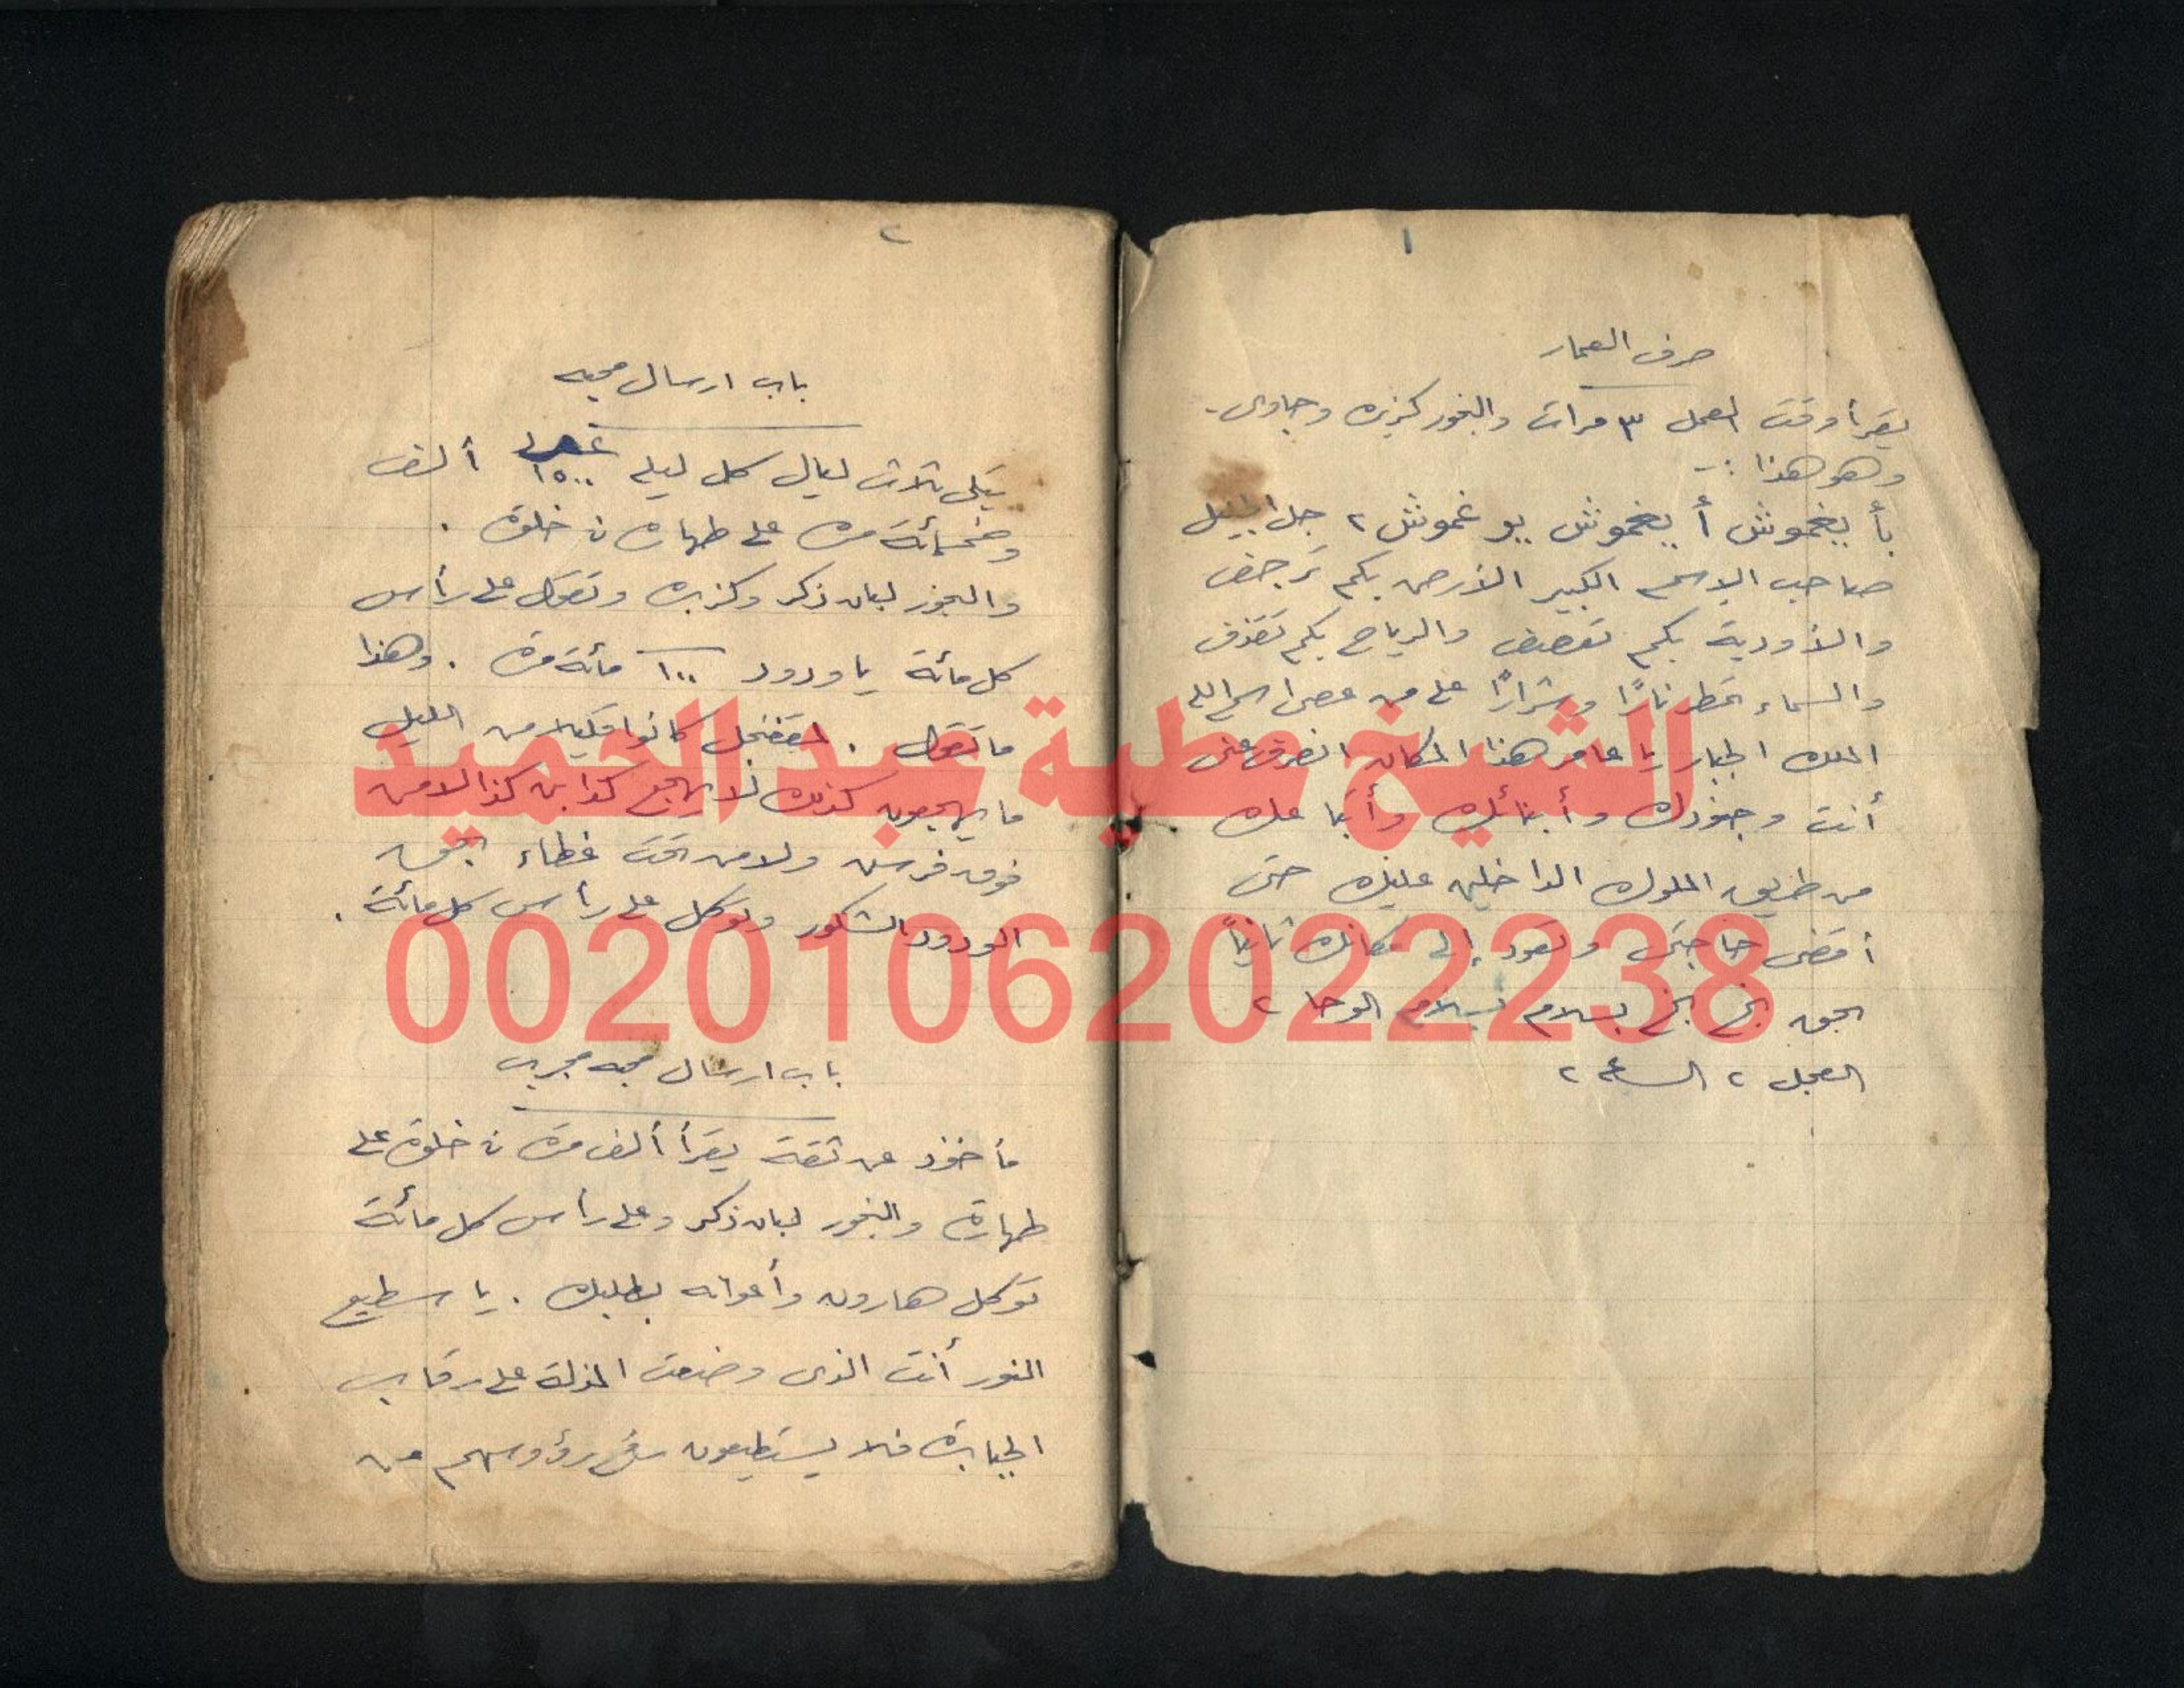 ١
صرف العمار
يقرأ وقت العمل ٣ مرات والبخور كزبره وجاوى.
وهو هذا :-
بأ يغموش أ يغموش يو غموش ٢ جل الجليل
صاحب الاسم الكبير الأرض بكم ترجف
والأودية بكم تعصف والرياح بكم تقذف
والسماء تمطر نارًا وشرارًا على من عصى اسم الله
الملك الجبار يا عامر هذا المكان انصرف عنى
أنت وجنودك وأبنائك وأتباعك
من طريق الملوك الداخلين عليك حتى
أقضى حاجتى وتعود إلى مكانك ثانياً
بحق بسلام بسلام الوحا ٢
العجل ٢ الساعه ٢
٢
باب ارسال محبه
يتلى ثلاث ليال كل ليله ١٥٠٠ ألف
وخمسمائة مره على طهارة فى خلوة .
والبخور لبان ذكر وكزبره وتقول على رأس
كل مائة يا ودود ١٠٠ مائة مرة . وهذا
ما تقول . كانوا قليلا من الليل
ما يهجعون كذلك لا يهجع كذا بن كذا لا من
فوق فرش ولا من تحت غطاء بحق
الودود الشكور وتوكل على رأس كل مائة .
باب ارسال محبه مجرب
مأخوذ عن ثقة يقرأ ألف مرة فى خلوة على
طهارة والبخور لبان ذكر وعلى رأس كل مائة
توكل هارون وأعوانه بطلبك . يا سطيع
النور أنت الذى وضعت المذلة على رقاب
الجبابرة فلا يستطيعون رفع رؤوسهم من
الشيخ عطية عبد الحميد
00201062022238